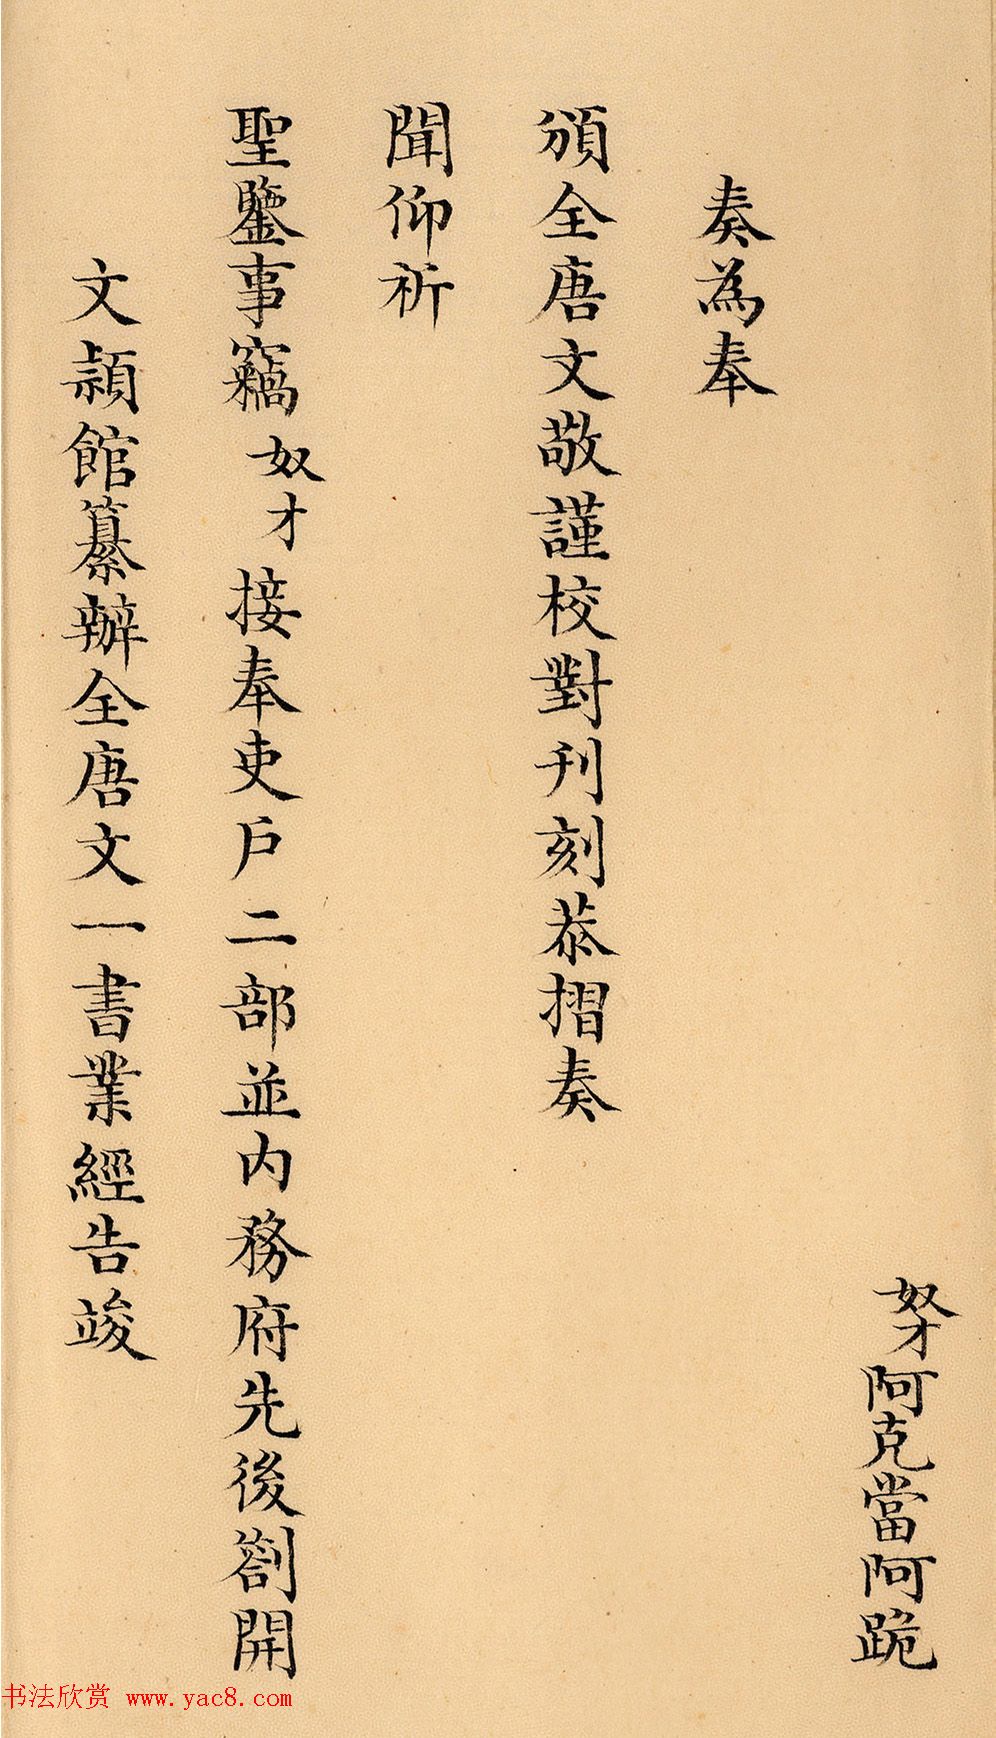 奴才阿克當阿跪
奏為奉
頒全唐文敬謹校對刊刻恭摺奏
聞仰祈
聖鑒事竊奴才接奉吏戶二部並內務府先後劄開
文穎館纂辦全唐文一書業經告竣
书法欣赏 www.yac8.com